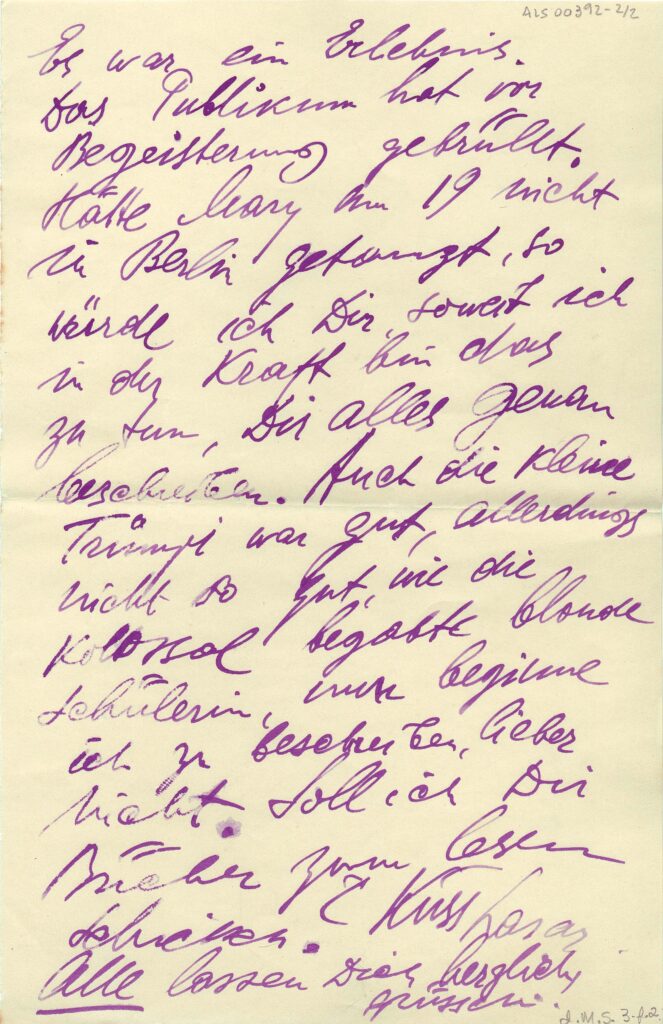 ALS 00392-2/2
Es war ein Erlebnis.
Das Publikum hat vor
Begeisterung gebrüllt.
Hätte Mary am 19 nicht
in Berlin getanzt, so
würde ich Dir, soweit ich
in der Kraft bin das
zu tun, Dir alles genau
beschreiben. Auch die kleine
Trümpi war gut, allerdings
nicht so gut, wie die
kolossal begabte blonde
Schülerin, nun beginne
ich zu beschreiben, lieber
nicht. Soll ich Dir
Bücher zum lesen
schicken. Kuss
Alle lassen Dich herzlich
grüssen.